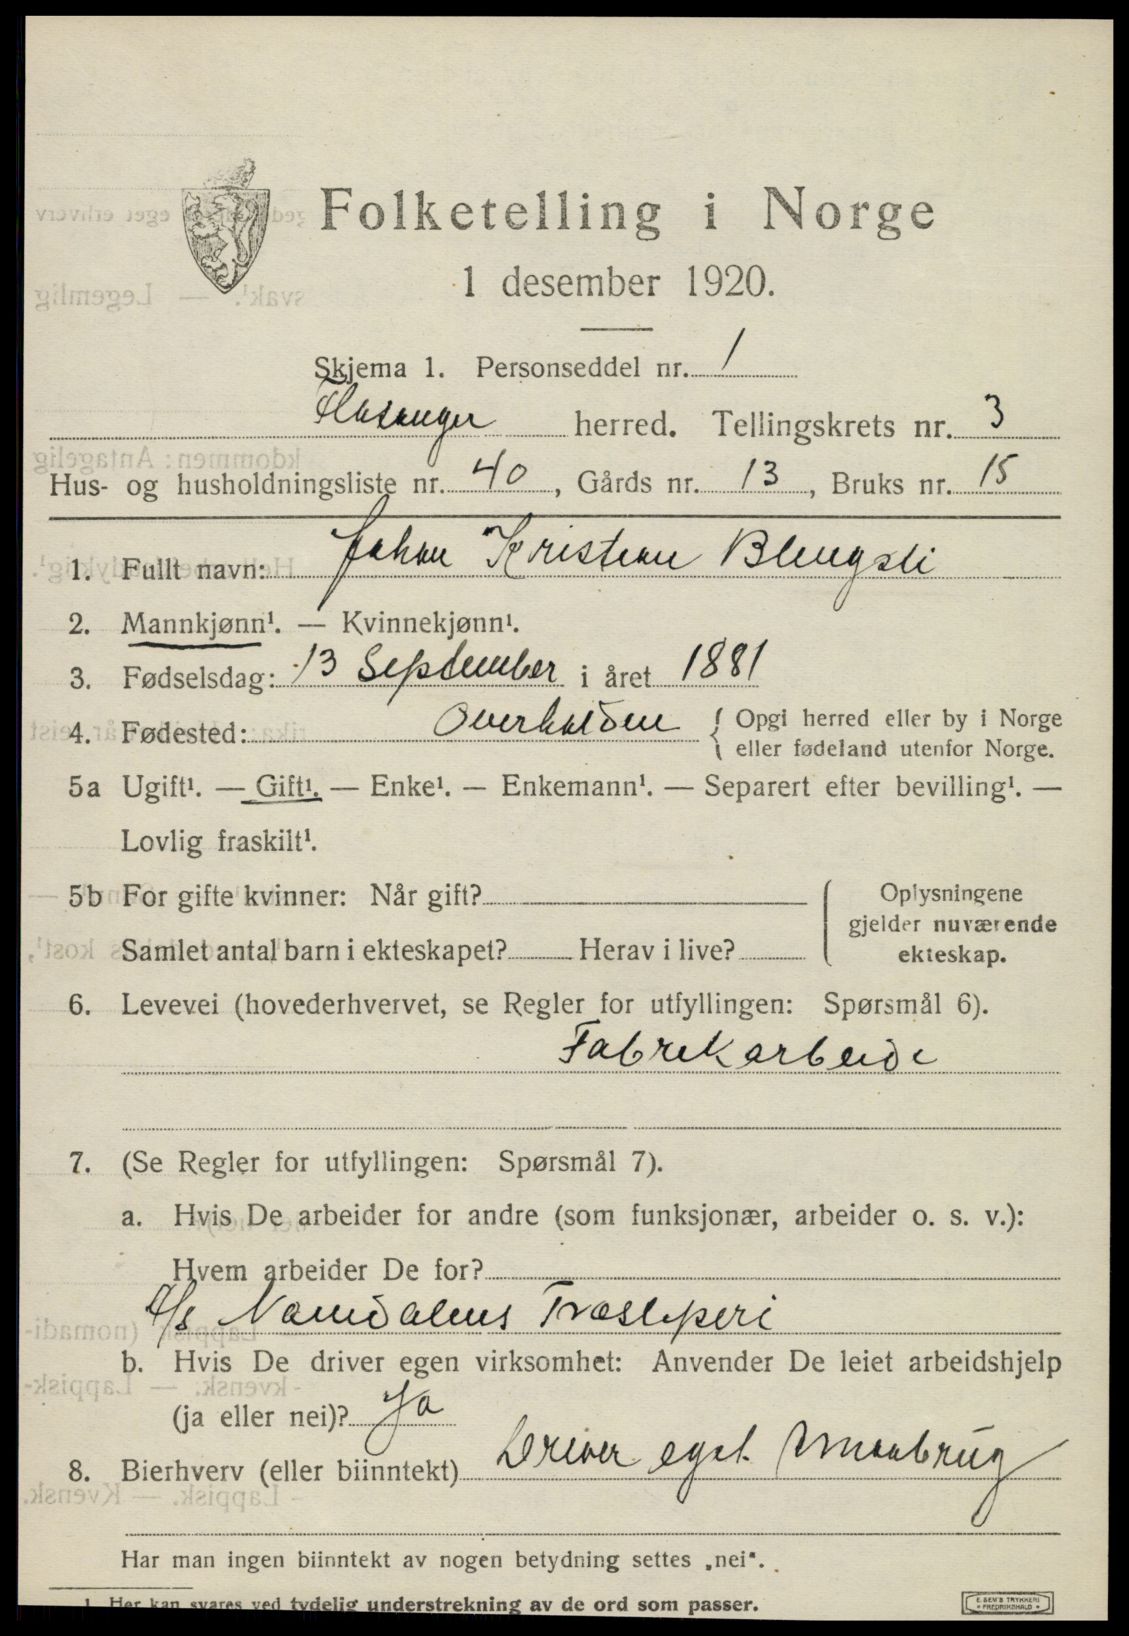 Folketelling i Norge
1 desember 1920.
Skjema 1. Personseddel nr. 1
herred. Tellingskrets nr. 3
Hus- og husholdningsliste nr. 40, Gårds nr. 13, Bruks nr. 15
1. Fullt navn: Johan Kristian Blengsli
2. Mannkjønn¹. — Kvinnekjønn¹.
3. Fødselsdag: 13 September i året 1881
4. Fødested: Overhalden { Opgi herred eller by i Norge
eller fødeland utenfor Norge.
5a Ugift¹. — Gift¹. — Enke¹. — Enkemann¹. — Separert efter bevilling¹. —
Lovlig fraskilt¹.
5b For gifte kvinner: Når gift?
Samlet antal barn i ekteskapet? Herav i live?
Oplysningene
gjelder nuværende
ekteskap.
6. Levevei (hovederhvervet, se Regler for utfyllingen: Spørsmål 6).
Fabrikarbeide
7. (Se Regler for utfyllingen: Spørsmål 7).
a. Hvis De arbeider for andre (som funksjonær, arbeider o. s. v.):
Hvem arbeider De for?
A/s Namdalens Træsliperi
b. Hvis De driver egen virksomhet: Anvender De leiet arbeidshjelp
(ja eller nei)? Ja
8. Bierhverv (eller biinntekt) Driver eget Smaabrug
Har man ingen biinntekt av nogen betydning settes „nei".
1. Her kan svares ved tydelig understrekning av de ord som passer.
E. SEM'S TRYKKERI
FREDRIKSHALD